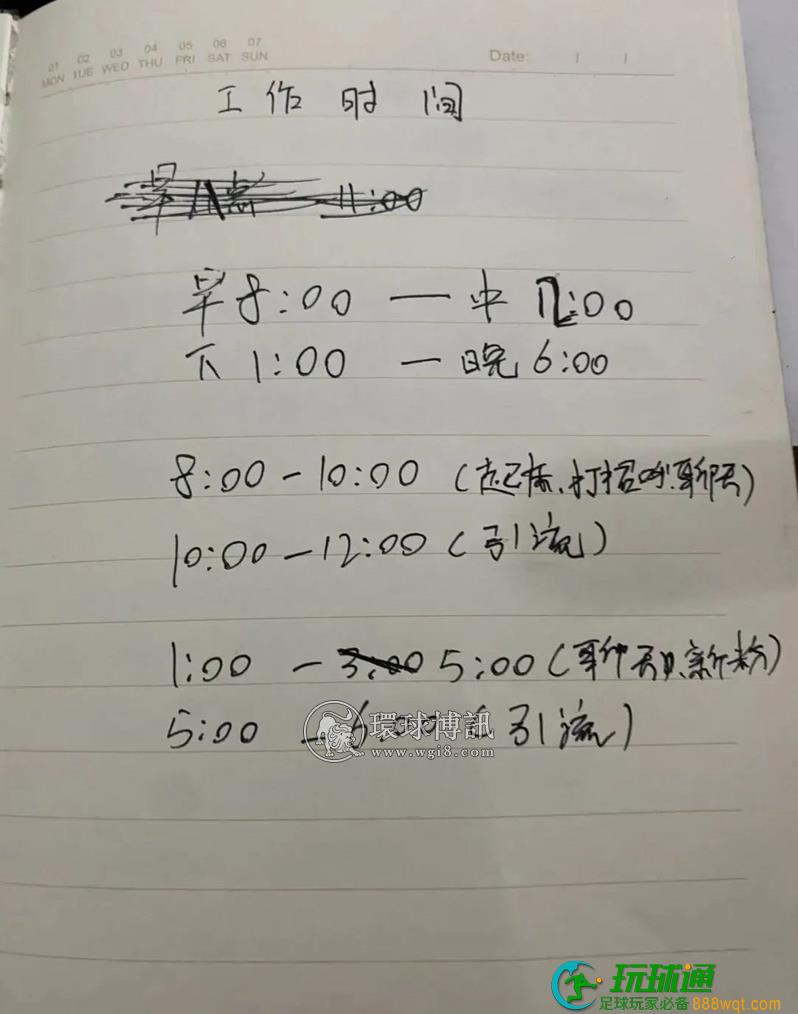 01 02 03 04 05 06 07
MON TUE WED THU FRI SAT SUN
Date: / /
工作时间
早八点 — 11:00
早8:00 — 中12:00
下1:00 — 晚6:00
8:00 — 10:00 (起床、打招呼、聊天)
10:00 — 12:00 (引流)
1:00 — 3:00 5:00 (聊天、新粉)
5:00 — 6:00 (引流)
環球博訊
www.wgi8.com
玩球通
足球玩家必备888wqt.com